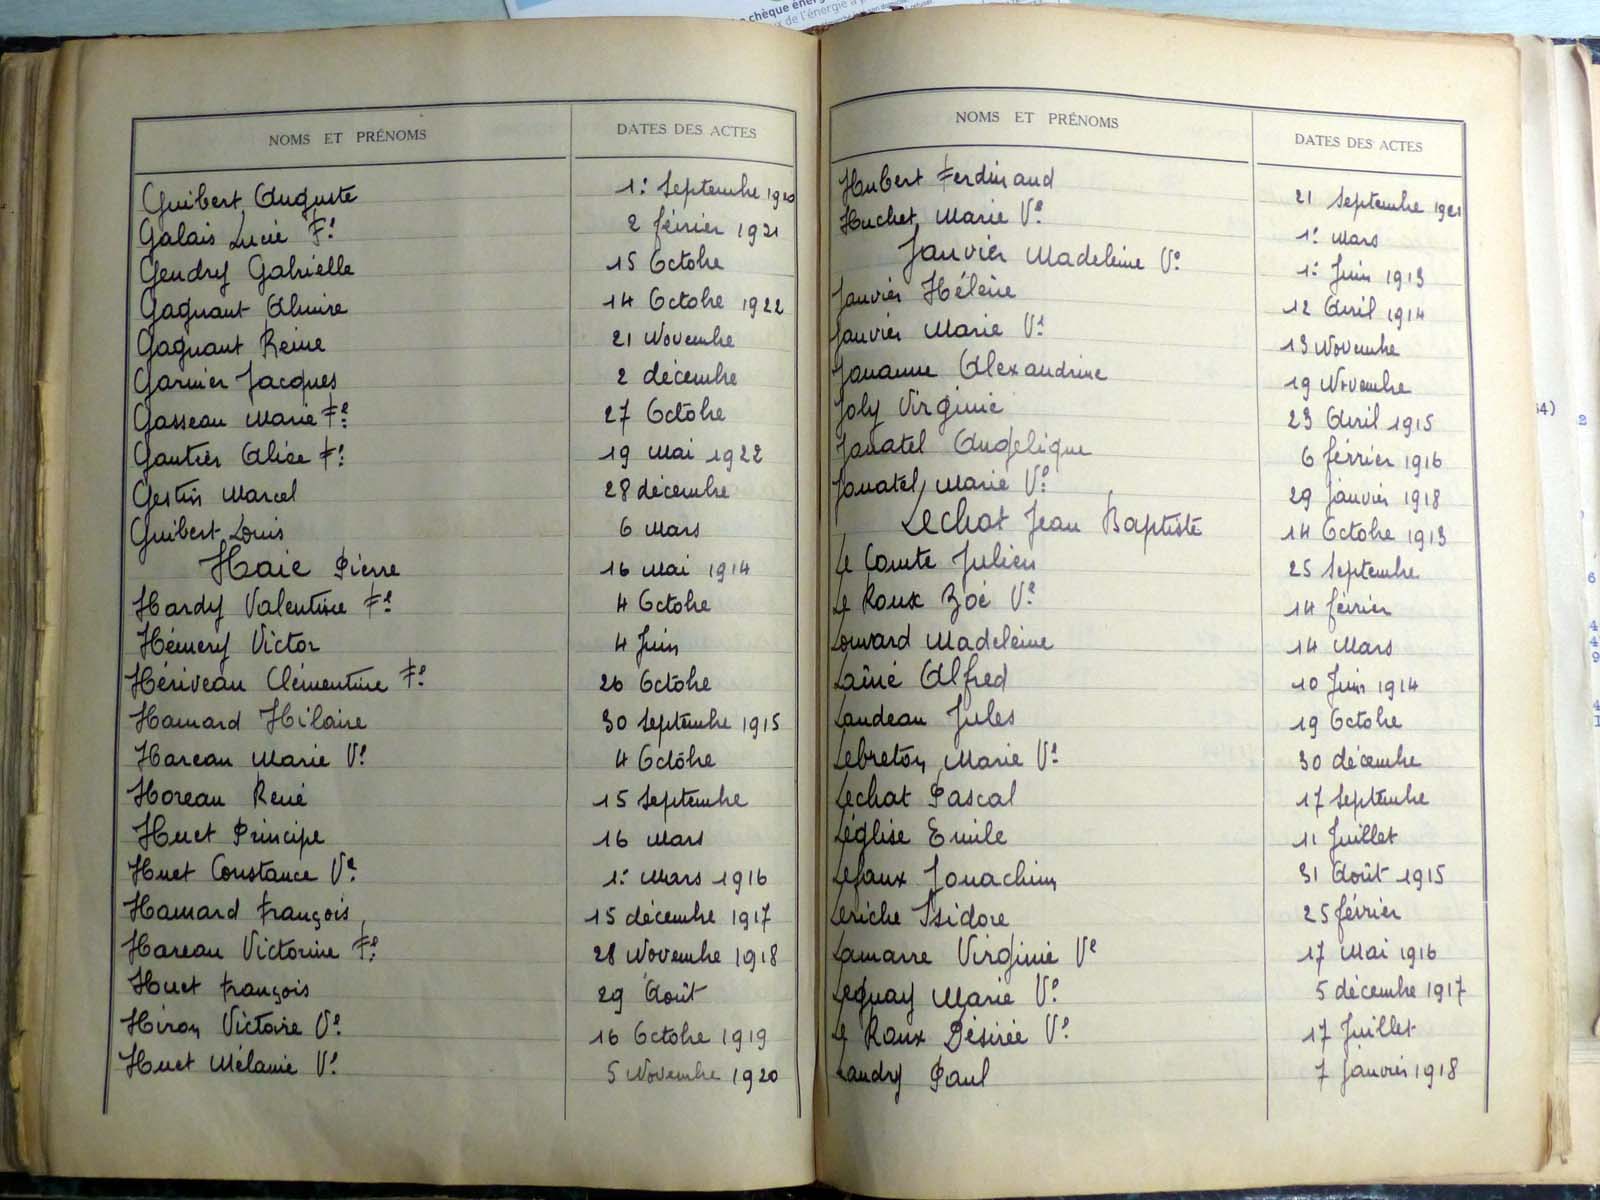 chèque énerg
de l'énergie à p
NOMS ET PRÉNOMS DATES DES ACTES
Guibert Auguste 1: Septembre 1920
Galais Lucie Fe. 2 février 1921
Gendry Gabrielle 15 Octobre
Gagnant Almire 14 Octobre 1922
Gagnant Reine 21 Novembre
Garnier Jacques 2 décembre
Gasseau Marie Fe. 27 Octobre
Gautier Alice Fe. 19 Mai 1922
Gestin Marcel 28 décembre
Guibert Louis 6 Mars
Haie Pierre 16 Mai 1914
Hardy Valentine Fe. 4 Octobre
Hémery Victor 4 Juin
Hériveau Clémentine Fe. 26 Octobre
Hamard Hilaire 30 Septembre 1915
Hareau Marie Ve. 4 Octobre
Horeau René 15 Septembre
Huet Principe 16 Mars
Huet Constance Ve. 1: Mars 1916
Hamard François 15 décembre 1917
Hareau Victorine Fe. 28 Novembre 1918
Huet François 29 Août
Hiron Victoire Ve. 16 Octobre 1919
Huet Mélanie Ve. 5 Novembre 1920
NOMS ET PRÉNOMS DATES DES ACTES
Hubert Ferdinand 21 Septembre 1921
Huchet Marie Ve. 1: Mars
Janvier Madeleine Ve. 1: Juin 1913
Janvier Hélène 12 Avril 1914
Janvier Marie Ve. 13 Novembre
Jouanne Alexandrine 19 Novembre
Joly Virginie 23 Avril 1915
Jouatel Angélique 6 février 1916
Jouatel Marie Ve. 29 Janvier 1918
Lechat Jean Baptiste 14 Octobre 1913
Le Comte Julien 25 Septembre
Le Roux Zoé Ve. 14 février
Louvard Madeleine 14 Mars
Lainé Alfred 10 Juin 1914
Landeau Jules 19 Octobre
Lebreton Marie Ve. 30 décembre
Lechat Pascal 17 Septembre
Léglise Emile 11 Juillet
Lefaux Jouachim 31 Août 1915
Leriche Isidore 25 février
Lamarre Virginie Ve 17 Mai 1916
Leguay Marie Ve. 5 décembre 1917
Le Roux Désirée Ve. 17 Juillet
Landry Paul 7 Janvier 1918